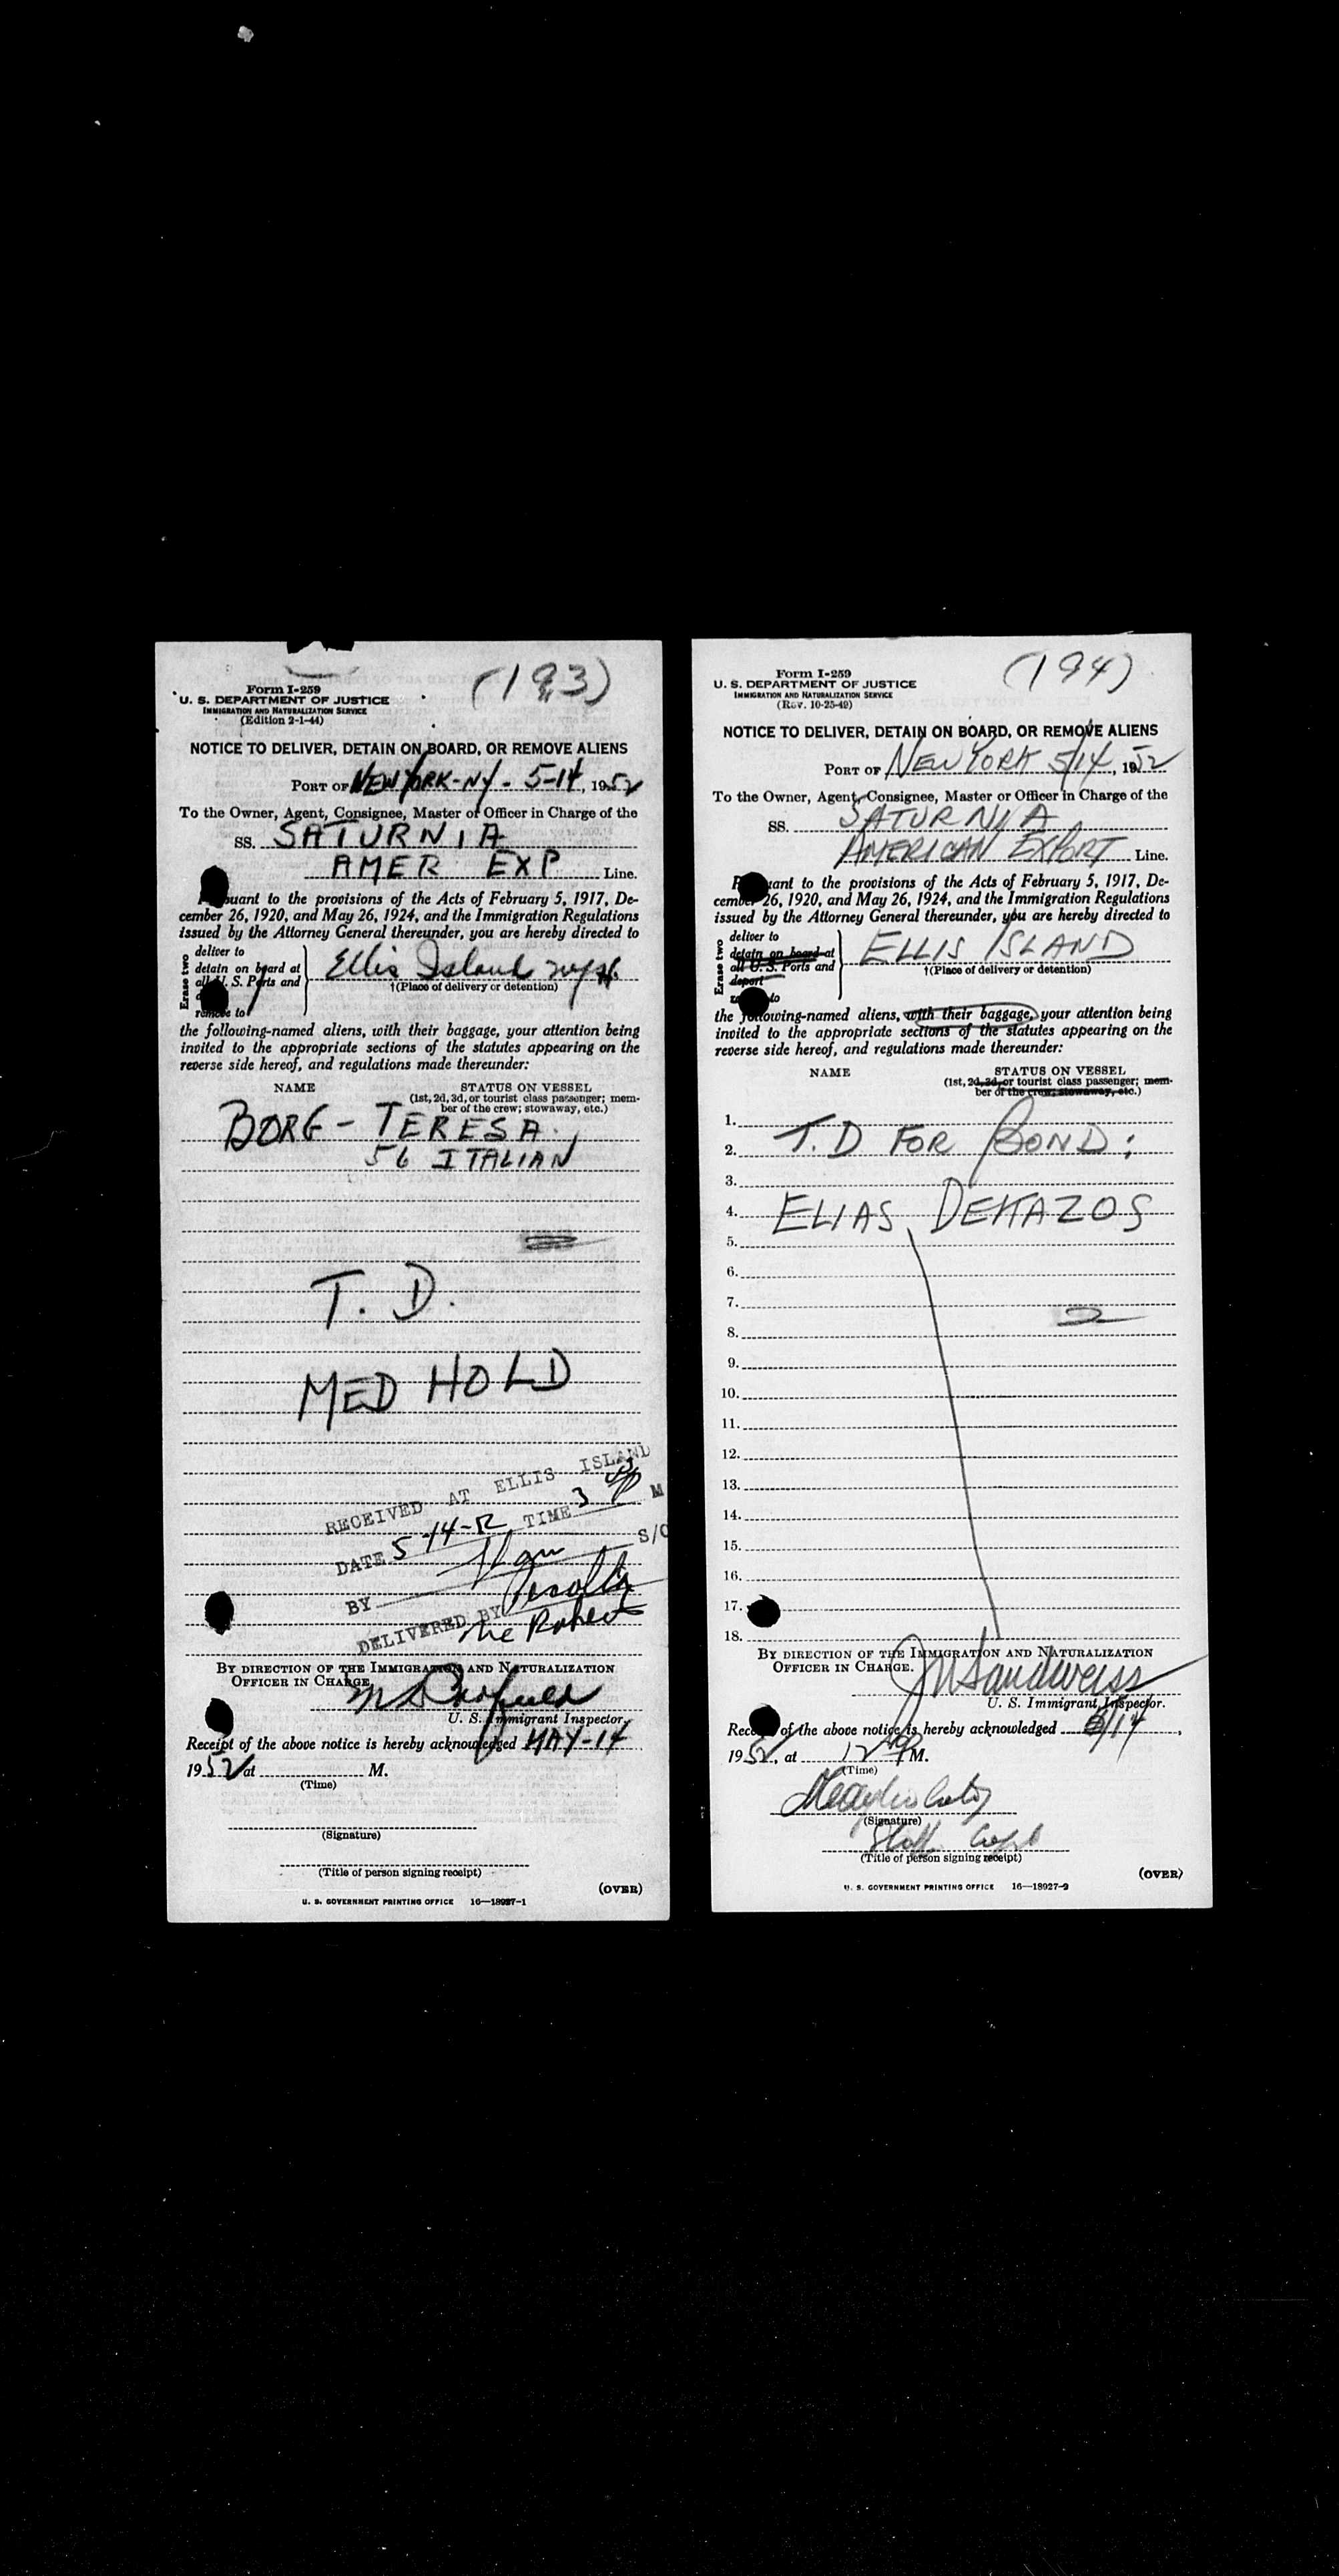 (193)
Form I-259
U. S. DEPARTMENT OF JUSTICE
IMMIGRATION AND NATURALIZATION SERVICE
(Edition 2-1-44)
NOTICE TO DELIVER, DETAIN ON BOARD, OR REMOVE ALIENS
PORT OF NEW YORK-NY - 5-14, 1952
To the Owner, Agent, Consignee, Master or Officer in Charge of the
SS. SATURNIA
AMER EXP Line.
Pursuant to the provisions of the Acts of February 5, 1917, De-
cember 26, 1920, and May 26, 1924, and the Immigration Regulations
issued by the Attorney General thereunder, you are hereby directed to
Erase two
deliver to
detain on board at
all U. S. Ports and
remove to
Ellis Island
†(Place of delivery or detention)
the following-named aliens, with their baggage, your attention being
invited to the appropriate sections of the statutes appearing on the
reverse side hereof, and regulations made thereunder:
NAME STATUS ON VESSEL
(1st, 2d, 3d, or tourist class passenger; mem-
ber of the crew; stowaway, etc.)
BORG - TERESA.
56 ITALIAN
T. D.
MED HOLD
RECEIVED AT ELLIS ISLAND
DATE 5-14-52 TIME 3 P M
BY S/O
DELIVERED BY
BY DIRECTION OF THE IMMIGRATION AND NATURALIZATION
OFFICER IN CHARGE.
U. S. Immigrant Inspector.
Receipt of the above notice is hereby acknowledged MAY-14
1952 at M.
(Time)
(Signature)
(Title of person signing receipt)
(OVER)
U. S. GOVERNMENT PRINTING OFFICE 16—18927-1
(194)
Form I-259
U. S. DEPARTMENT OF JUSTICE
IMMIGRATION AND NATURALIZATION SERVICE
(Rev. 10-25-49)
NOTICE TO DELIVER, DETAIN ON BOARD, OR REMOVE ALIENS
PORT OF NEW YORK 5/14, 1952
To the Owner, Agent, Consignee, Master or Officer in Charge of the
SS. SATURNIA
AMERICAN EXPORT Line.
Pursuant to the provisions of the Acts of February 5, 1917, De-
cember 26, 1920, and May 26, 1924, and the Immigration Regulations
issued by the Attorney General thereunder, you are hereby directed to
Erase two
deliver to
detain on board at
all U. S. Ports and
deport
to
ELLIS ISLAND
†(Place of delivery or detention)
the following-named aliens, with their baggage, your attention being
invited to the appropriate sections of the statutes appearing on the
reverse side hereof, and regulations made thereunder:
NAME STATUS ON VESSEL
(1st, 2d, 3d, or tourist class passenger; mem-
ber of the crew; stowaway, etc.)
1.
2. T. D FOR BOND:
3.
4. ELIAS, DEKAZOS
5.
6.
7.
8.
9.
10.
11.
12.
13.
14.
15.
16.
17.
18.
BY DIRECTION OF THE IMMIGRATION AND NATURALIZATION
OFFICER IN CHARGE. JM Sandweiss
U. S. Immigrant Inspector.
Receipt of the above notice is hereby acknowledged 5/14,
1952, at 12 M.
(Time)
(Signature)
Staff Capt
(Title of person signing receipt)
(OVER)
U. S. GOVERNMENT PRINTING OFFICE 16—18927-2